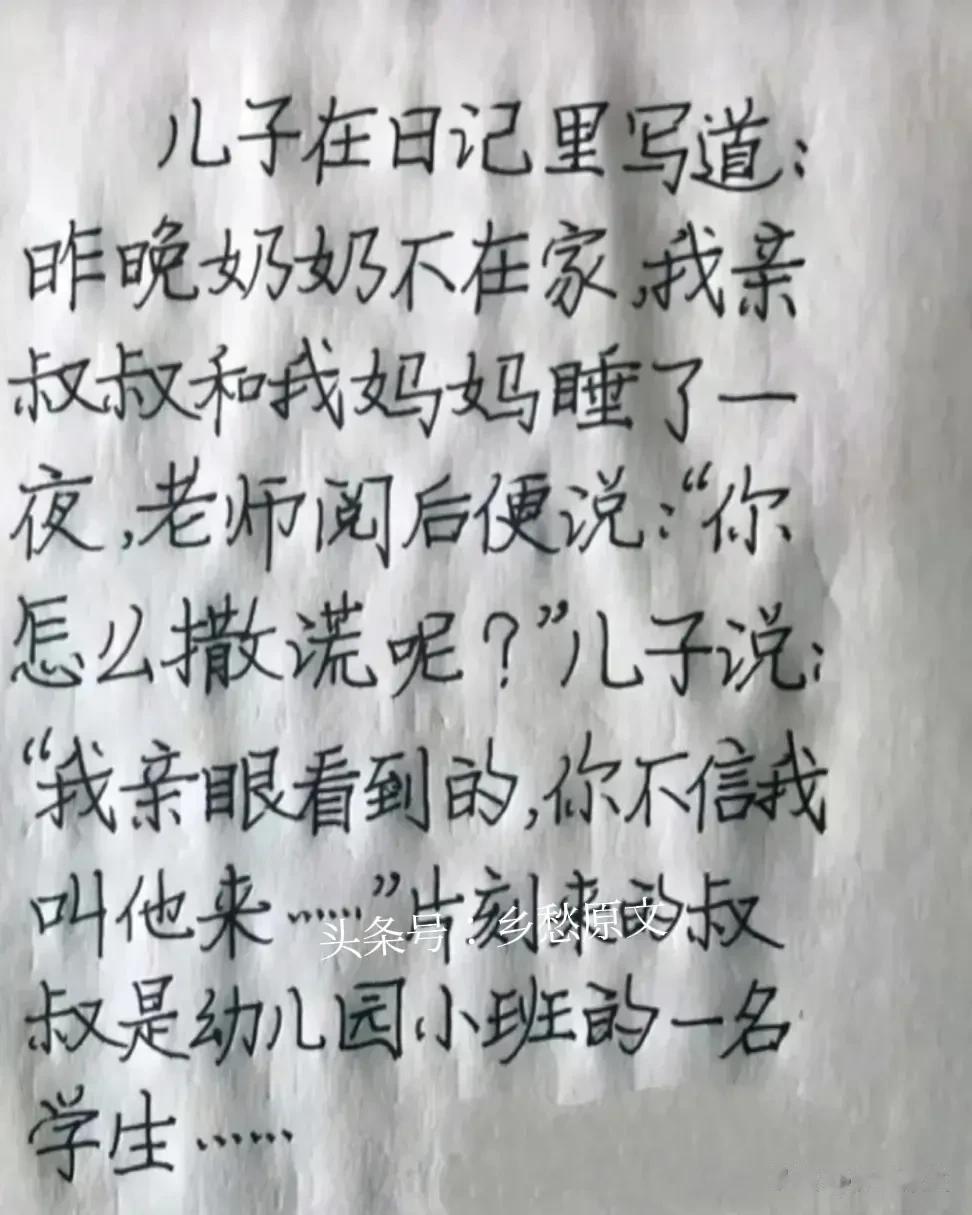 儿子在日记里写道:
昨晚奶奶不在家,我亲
叔叔和我妈妈睡了一
夜,老师阅后便说:“你
怎么撒谎呢?”儿子说:
“我亲眼看到的,你不信我
叫他来……”片刻来的叔
头条号:乡愁原文
叔是幼儿园小班的一名
学生……